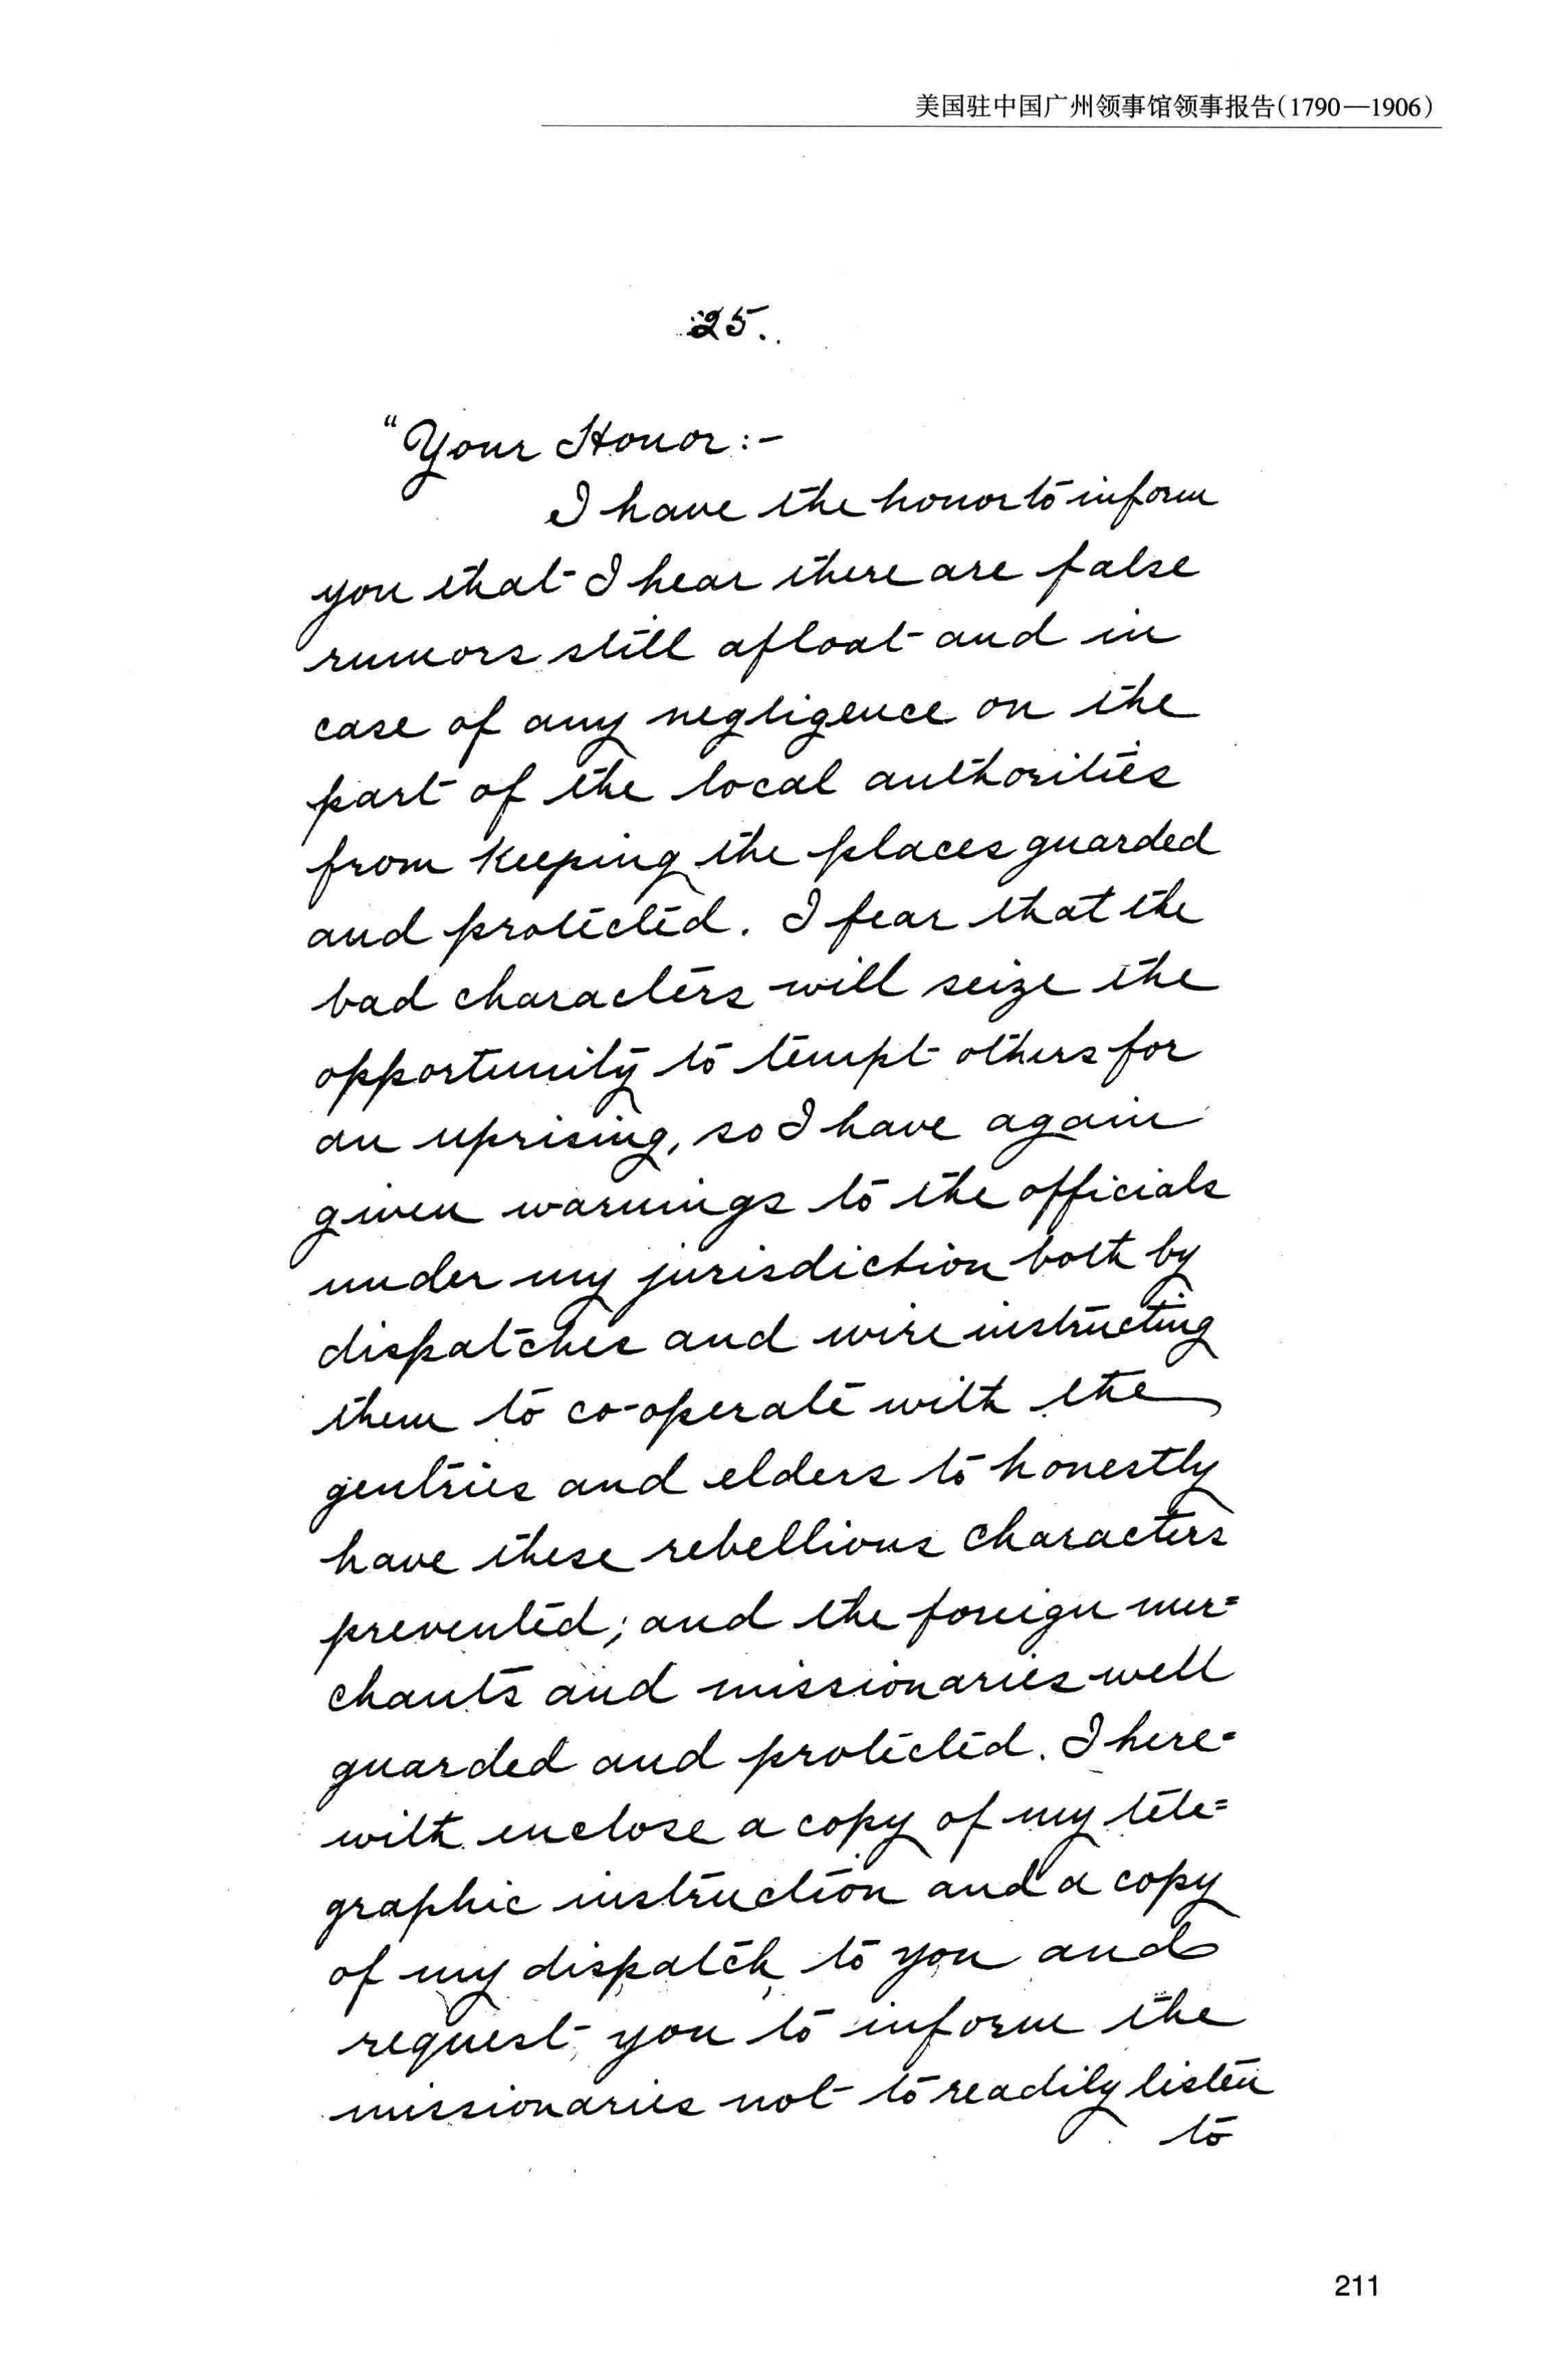 美国驻中国广州领事馆领事报告(1790—1906)
25.
"Your Honor:-
I have the honor to inform
you that I hear there are false
rumors still afloat and in
case of any negligence on the
part of the local authorities
from keeping the places guarded
and protected. I fear that the
bad characters will seize the
opportunity to tempt others for
an uprising, so I have again
given warnings to the officials
under my jurisdiction both by
dispatches and wire instructing
them to co-operate with the
gentries and elders to honestly
have these rebellious characters
prevented; and the foreign mer=
chants and missionaries well
guarded and protected. I here=
with enclose a copy of my tele=
graphic instruction and a copy
of my dispatch to you and
request you to inform the
missionaries not to readily listen
to
211